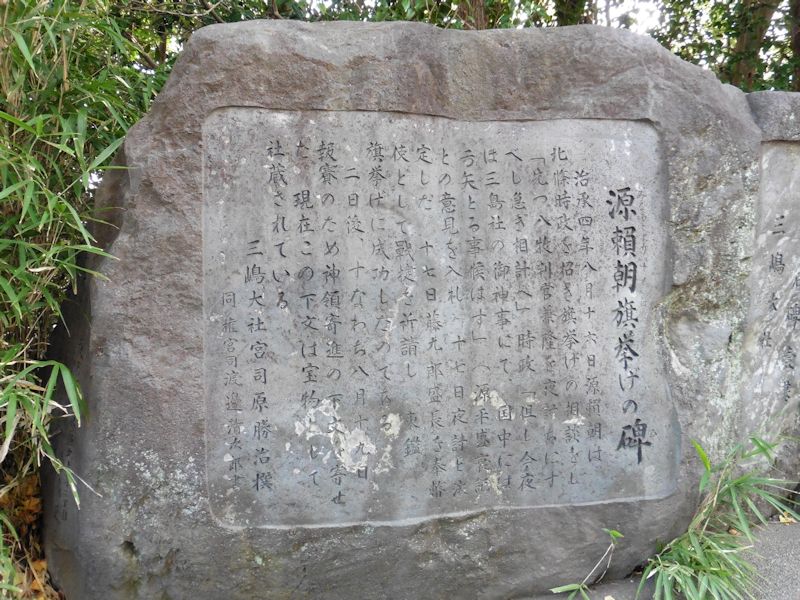 源頼朝旗挙げの碑
治承四年八月十六日源頼朝は
北條時政を招き旗挙げの相談をし
「先づ八牧判官兼隆を夜討ちにす
べし急ぎ相計へ」時政「但し今夜
は三島社の御神事にて、国中には
弓矢とる事候はず」(源平盛衰記)
との意見を入れ、十七日夜討と決
定した 十七日藤九郎盛長を奉幣
使として戦捷を祈請し 東鑑
旗挙げに成功したのである
二日後、すなわち八月十九日
報賽のため神領寄進の下文を寄せ
た 現在この下文は宝物として
社蔵されている
三嶋大社宮司原勝治撰
同権宮司渡邉
三嶋大社